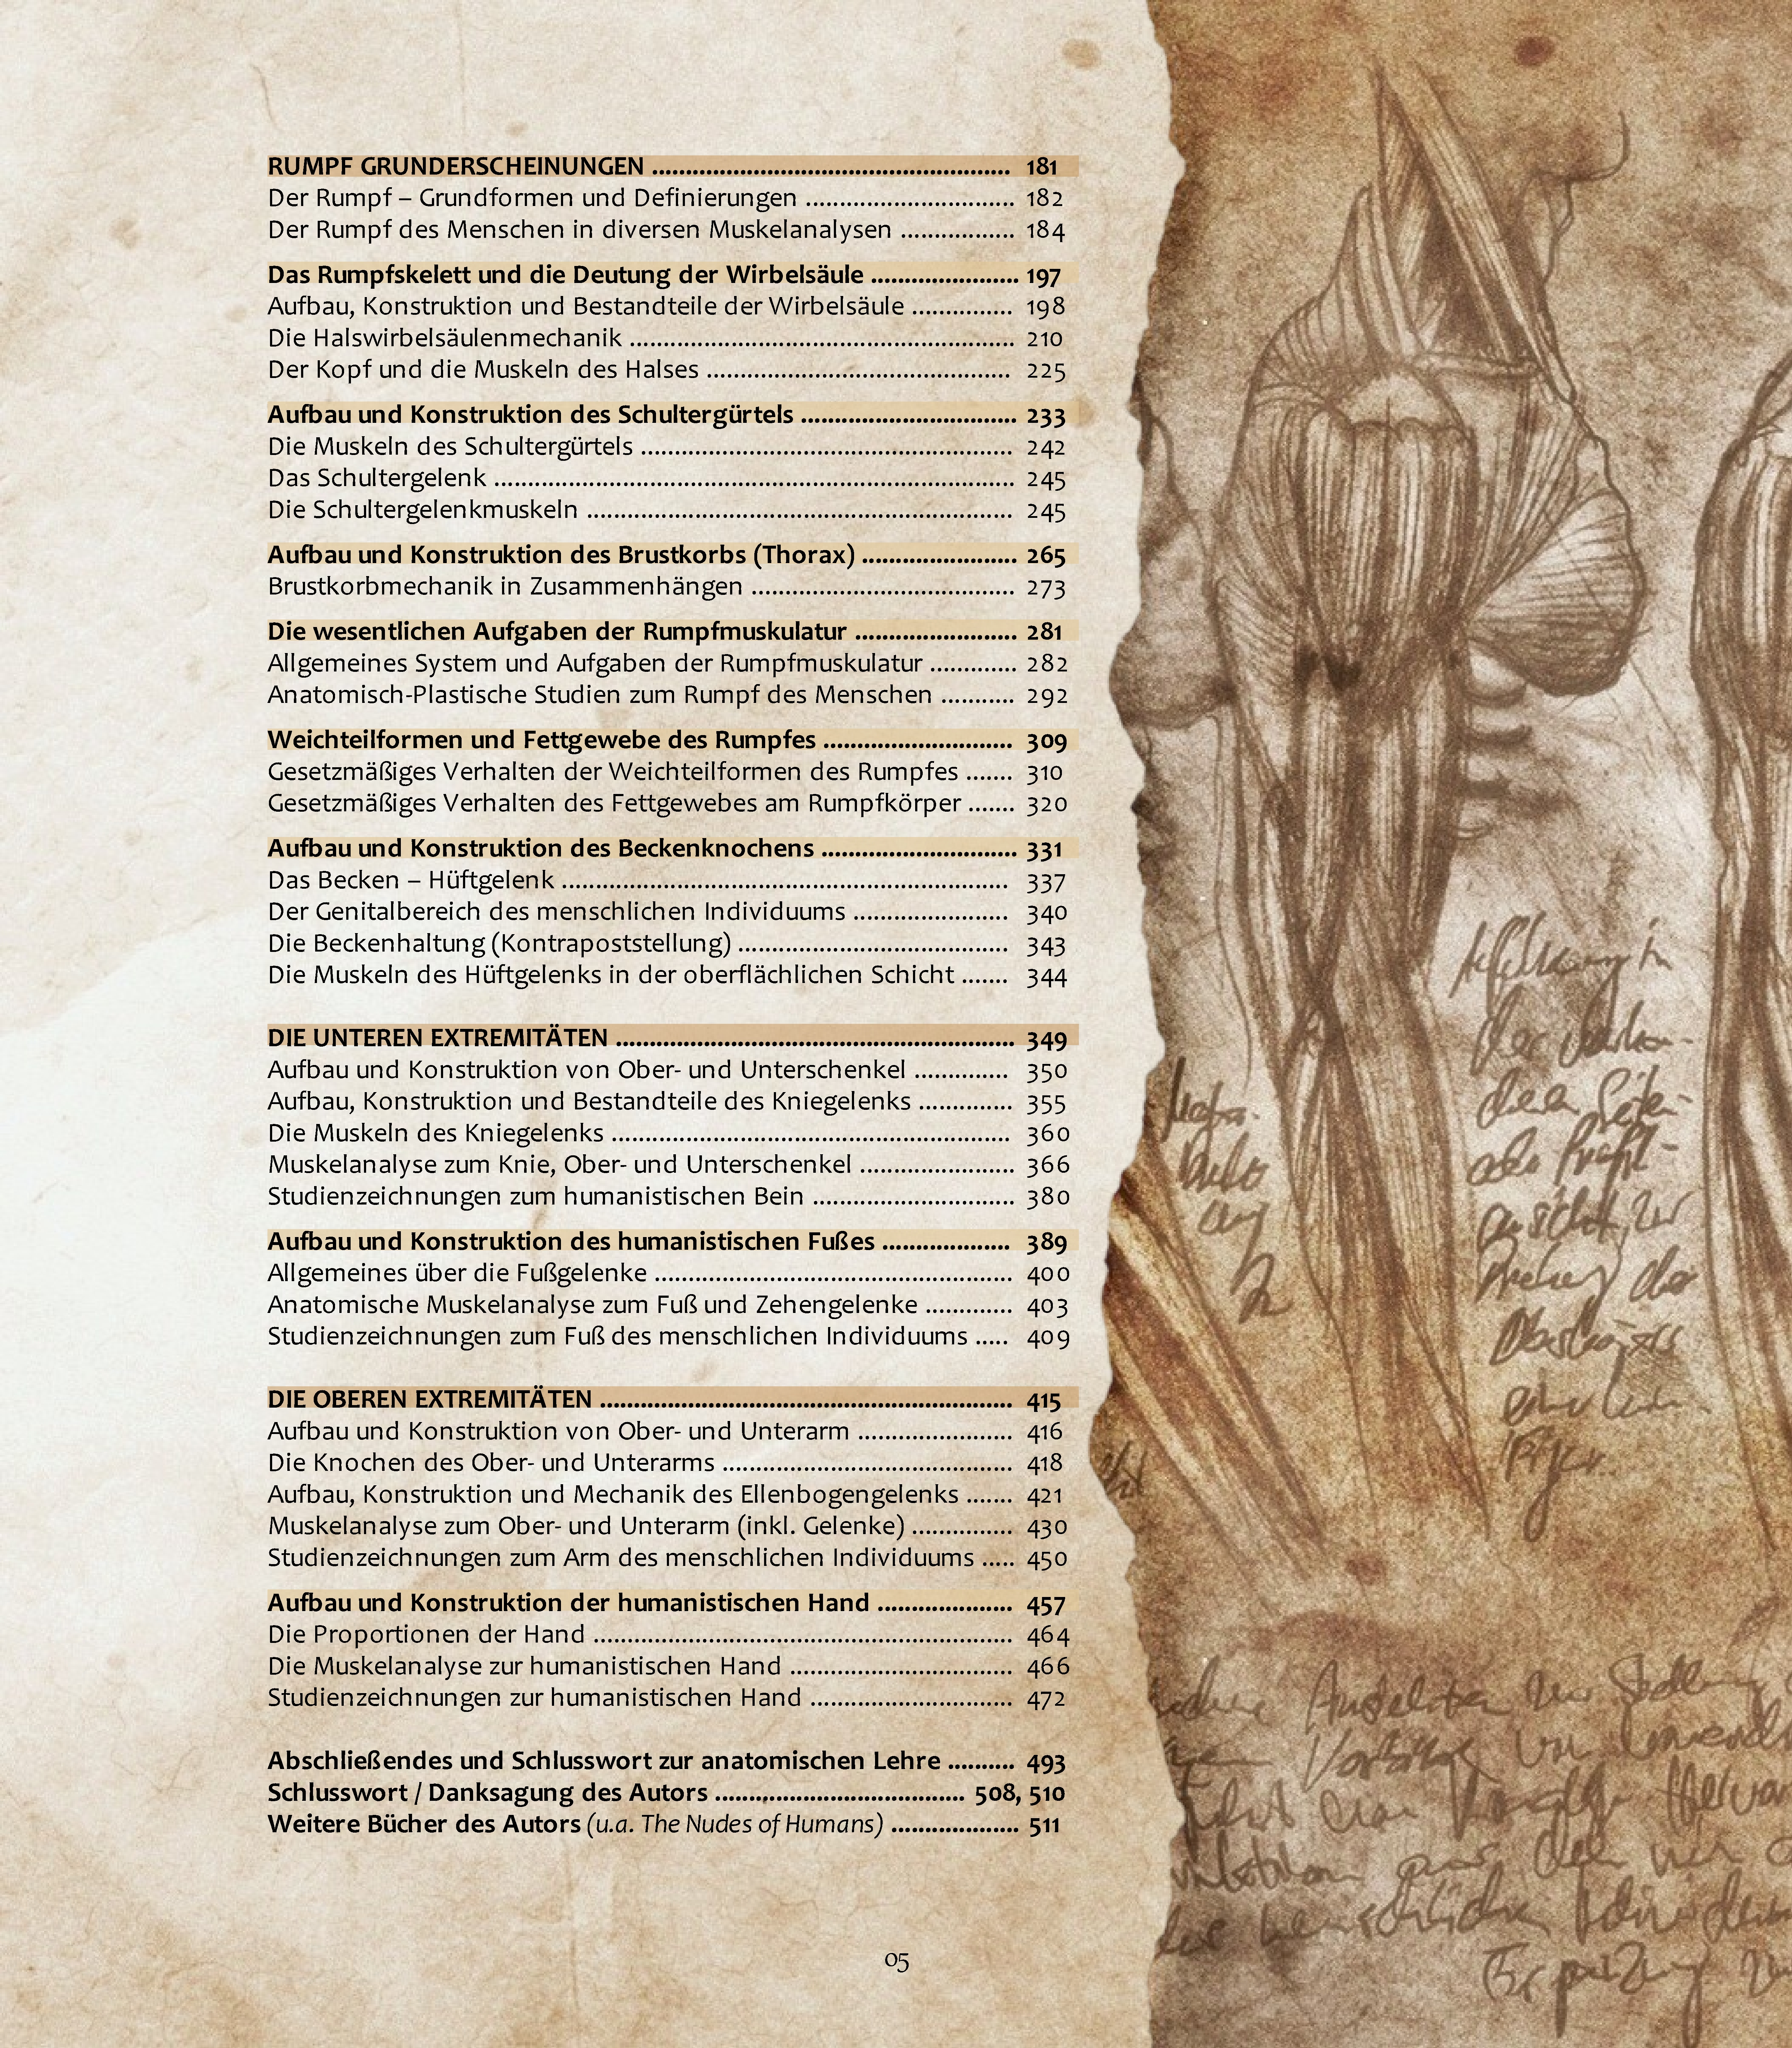 RUMPF GRUNDERSCHEINUNGEN ..................................................... 181
Der Rumpf – Grundformen und Definierungen ............................... 182
Der Rumpf des Menschen in diversen Muskelanalysen ................. 184
Das Rumpfskelett und die Deutung der Wirbelsäule ...................... 197
Aufbau, Konstruktion und Bestandteile der Wirbelsäule ............... 198
Die Halswirbelsäulenmechanik ......................................................... 210
Der Kopf und die Muskeln des Halses ............................................. 225
Aufbau und Konstruktion des Schultergürtels ................................ 233
Die Muskeln des Schultergürtels ....................................................... 242
Das Schultergelenk ............................................................................. 245
Die Schultergelenkmuskeln ............................................................... 245
Aufbau und Konstruktion des Brustkorbs (Thorax) ....................... 265
Brustkorbmechanik in Zusammenhängen ....................................... 273
Die wesentlichen Aufgaben der Rumpfmuskulatur ........................ 281
Allgemeines System und Aufgaben der Rumpfmuskulatur ............. 282
Anatomisch-Plastische Studien zum Rumpf des Menschen ........... 292
Weichteilformen und Fettgewebe des Rumpfes ............................ 309
Gesetzmäßiges Verhalten der Weichteilformen des Rumpfes ....... 310
Gesetzmäßiges Verhalten des Fettgewebes am Rumpfkörper ....... 320
Aufbau und Konstruktion des Beckenknochens ............................. 331
Das Becken – Hüftgelenk .................................................................. 337
Der Genitalbereich des menschlichen Individuums ....................... 340
Die Beckenhaltung (Kontrapoststellung) ........................................ 343
Die Muskeln des Hüftgelenks in der oberflächlichen Schicht ....... 344
DIE UNTEREN EXTREMITÄTEN ........................................................... 349
Aufbau und Konstruktion von Ober- und Unterschenkel .............. 350
Aufbau, Konstruktion und Bestandteile des Kniegelenks .............. 355
Die Muskeln des Kniegelenks ........................................................... 360
Muskelanalyse zum Knie, Ober- und Unterschenkel ....................... 366
Studienzeichnungen zum humanistischen Bein .............................. 380
Aufbau und Konstruktion des humanistischen Fußes ................... 389
Allgemeines über die Fußgelenke ..................................................... 400
Anatomische Muskelanalyse zum Fuß und Zehengelenke ............. 403
Studienzeichnungen zum Fuß des menschlichen Individuums ..... 409
DIE OBEREN EXTREMITÄTEN ............................................................. 415
Aufbau und Konstruktion von Ober- und Unterarm ....................... 416
Die Knochen des Ober- und Unterarms ........................................... 418
Aufbau, Konstruktion und Mechanik des Ellenbogengelenks ....... 421
Muskelanalyse zum Ober- und Unterarm (inkl. Gelenke) ............... 430
Studienzeichnungen zum Arm des menschlichen Individuums ..... 450
Aufbau und Konstruktion der humanistischen Hand .................... 457
Die Proportionen der Hand .............................................................. 464
Die Muskelanalyse zur humanistischen Hand ................................. 466
Studienzeichnungen zur humanistischen Hand .............................. 472
Abschließendes und Schlusswort zur anatomischen Lehre .......... 493
Schlusswort / Danksagung des Autors ..................................... 508, 510
Weitere Bücher des Autors (u.a. The Nudes of Humans) ................... 511
05